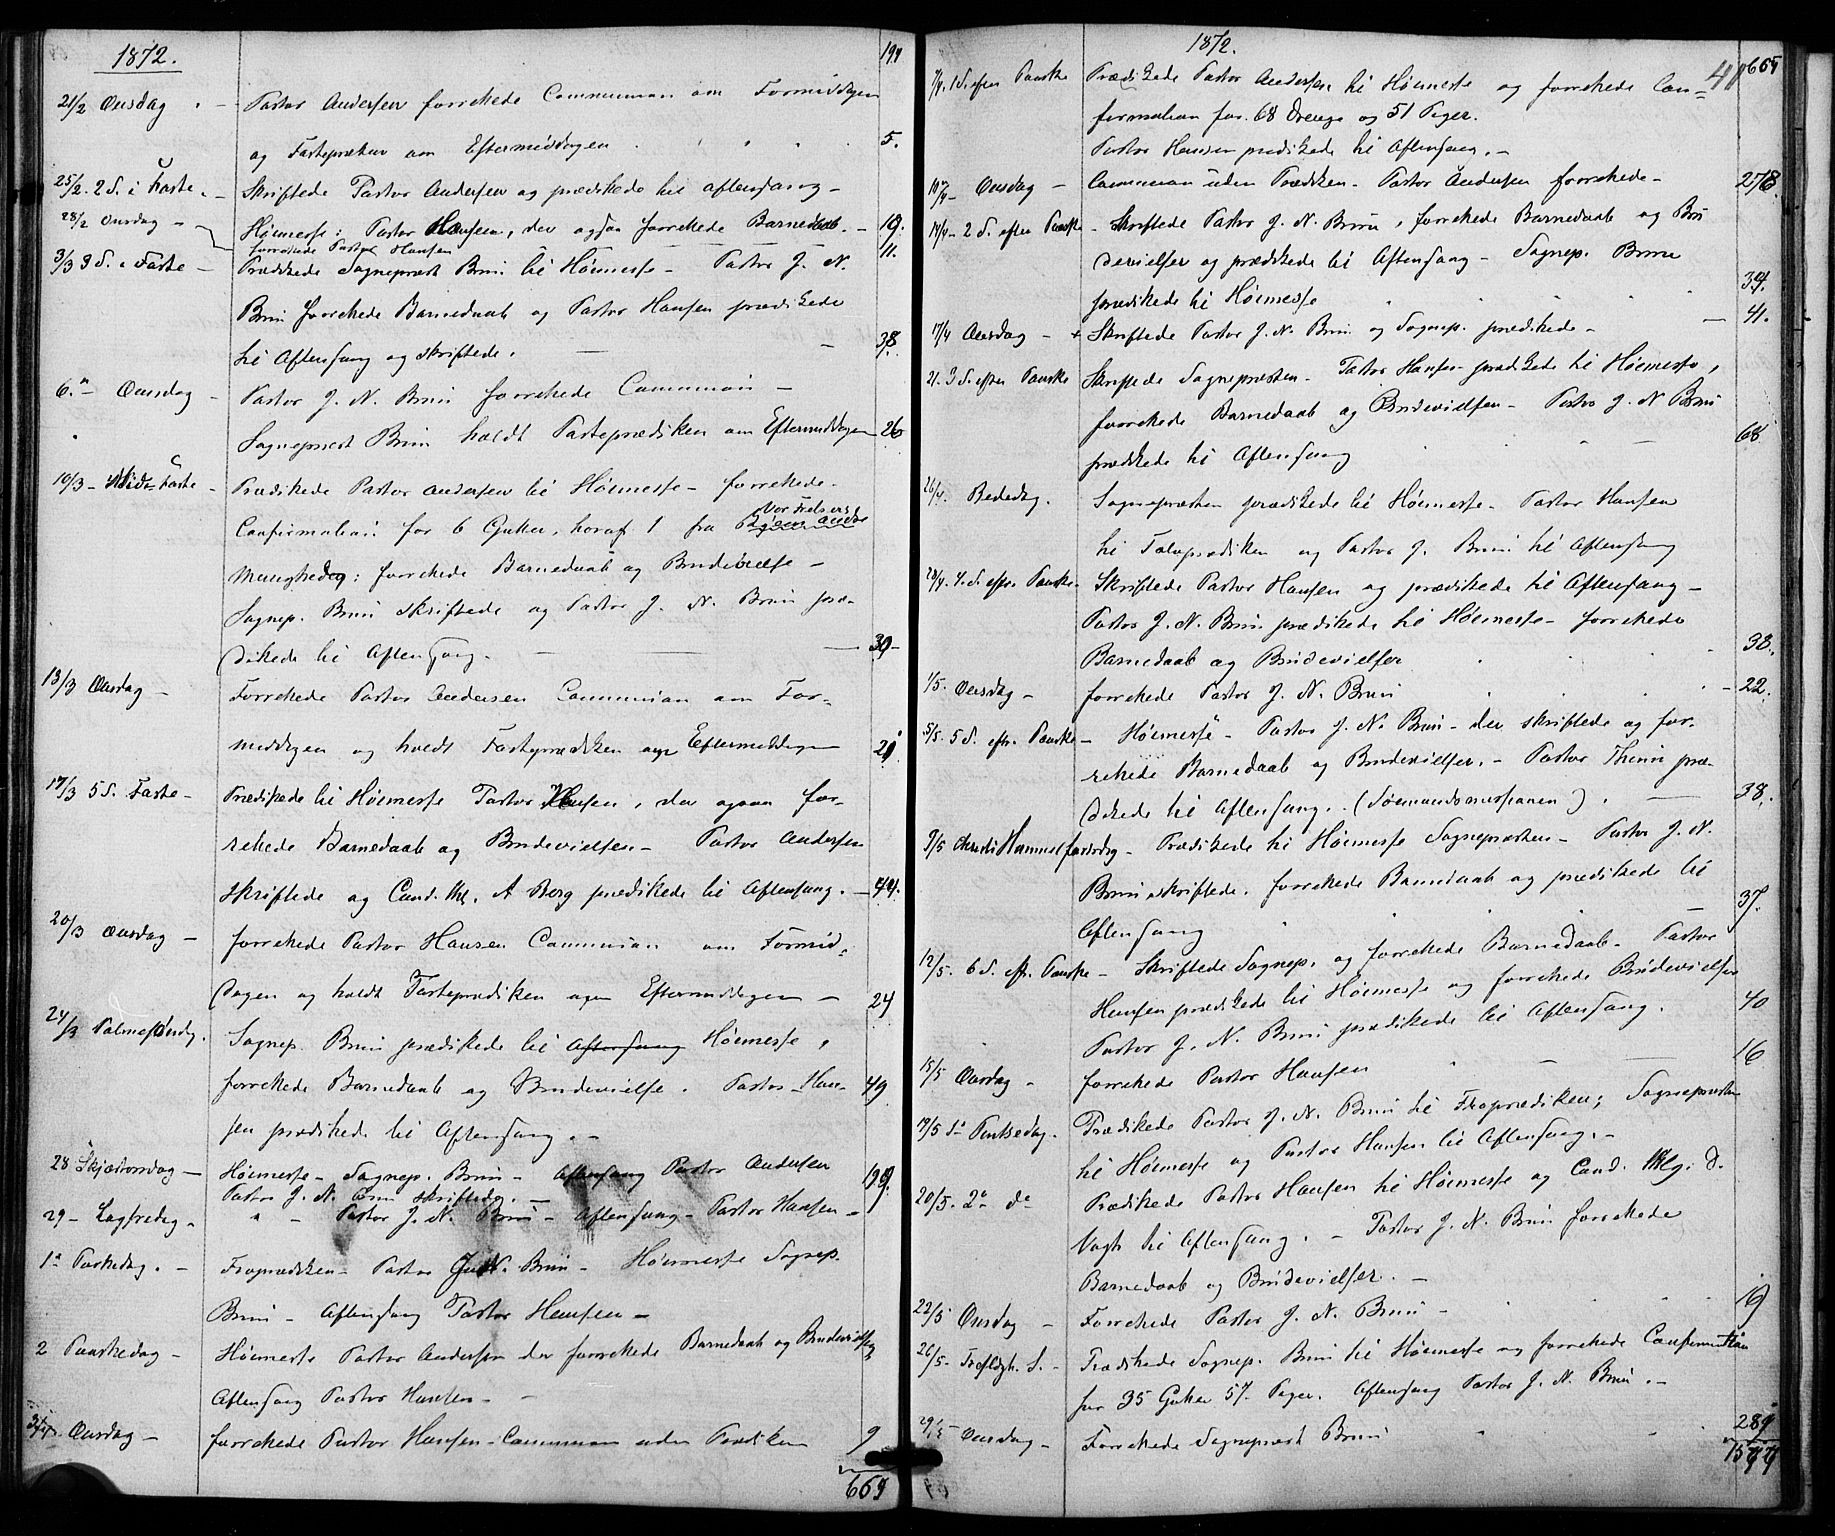 1872.
199
21/2 Onsdag - Pastor Andersen forrettede Communion om Formiddagen
og Fastepræken om Eftermiddagen . . . . 5.
25/2. 2 S. i Faste - Skriftede Pastor Andersen og prædikede til Aftensang -
28/2 Onsdag - Høimesse: Pastor Hansen, der ogsaa forrettede Barnedaab. - 19.
forrettede Pastor Hansen 11.
3/3 3 S. i Faste - Prædikede Sognepræst Brun til Høimesse - Pastor J. N.
Brun forrettede Barnedaab og Pastor Hansen prædikede
til Aftensang og skriftede. - - 38.
6. " Onsdag - Pastor J. N. Brun forrettede Communion -
Sognepræst Brun holdt Fasteprædiken om Eftermiddagen 26
10/3 - Midfaste - Prædikede Pastor Andersen til Høimesse - forrettede
Confirmation for 6 Gutter, horaf 1 fra Vor Frelsers
Menighed; forrettede Barnedaab og Brudevielse -
Sognep. Brun skriftede og Pastor J. N. Brun præ-
dikede til Aftensang. - - - 39 -
13/3 Onsdag - Forrettede Pastor Andersen Communion om For-
middagen og holdt Fasteprædiken om Eftermiddagen 21
17/3 5 S. Faste - Prædikede til Høimesse Pastor Hansen, der ogsaa for-
rettede Barnedaab og Brudevielsen - Pastor Andersen
skriftede og Cand. theol. A Berg prædikede til Aftensang. - 44.
20/3 Onsdag - forrettede Pastor Hansen Communion om Formid-
dagen og holdt Fasteprædiken om Eftermiddagen - 24
24/3 Palmesøndg. Sognep. Brun prædikede til Aftensang Høimesse,
forrettede Barnedaab og Brudevielse. Pastor Han- 49
sen prædikede til Aftensang. -
28 Skjærtorsdag - Høimesse - Sognep. Brun - Aftensang Pastor Andersen
Pastor J. N. Brun skriftede. - 199.
29 - Langfredag - " - Pastor J. N. Brun - Aftensang - Pastor Hansen -
1ste Paaskedag. - Froprædiken - Pastor J. N. Brun - Høimesse Sognep.
Brun - Aftensang Pastor Hansen -
2 Paaskedag - Høimesse Pastor Andersen der forrettede Barnedaab og Brudevielse,
Aftensang Pastor Hansen -
3/4 Onsdag - forrettede Pastor Hansen - Communion uden Prædiken 9
669
1872.
41 669
7/4. 1 S. efter Paaske Prædikede Pastor Andersen til Høimesse og forrettede Con-
firmation for 68 Drenge og 51 Piger.
Pastor Hansen prædikede til Aftensang. -
10/4 - Onsdag - Communion uden Prædiken. Pastor Andersen forrettede - 276.
14/4 - 2 S. efter Paaske - Skriftede Pastor J. N. Brun, forrettede Barnedaab og Bru
devielser og prædikede til Aftensang - Sognep. Brun
prædikede til Høimesse . . . . 34.
17/4 Onsdag - + Skriftede Pastor J. N. Brun og Sognep. prædikede - - 41.
21. 3 S. efter Paaske Skriftede Sognepræsten - Pastor Hansen prædikede til Høimesse,
forrettede Barnedaab og Brudevielsen - Pastor J. N Brun
prædikede til Aftensang 68
26/4. Bededag. Sognepræsten prædikede til Høimesse - Pastor Hansen
til Tolvprædiken og Pastor J. Brun til Aftensang
28/4. 4. S. efter Paaske - Skriftede Pastor Hansen og prædikede til Aftensang -
Pastor J. N. Brun prædikede til Høimesse - forrettede
Barnedaab og Brudevielser . . . 38.
1/5. Onsdag - forrettede Pastor J. N. Brun . . . - 22.
5/5. 5 S. eftr. Paaske - Høimesse - Pastor J. N. Brun - der skriftede og for-
rettede Barnedaab og Brudevielser. - Pastor Thiim præ-
dikede til Aftensang. (Sømandsmissionen). - 38.
9/5 Christi Himmelfartsdg - Prædikede til Høimesse Sognepræsten - Pastor J. N.
Brun skriftede. forrettede Barnedaab og prædikede til
Aftensang . . . - 37.
12/5. 6 S. eft. Paaske - Skriftede Sognep. og forrettede Barnedaab - Pastor
Hansen prædikede til Høimesse og forrettede Brudevielser
Pastor J. N. Brun prædikede til Aftensang. 40
15/5 Onsdag - forrettede Pastor Hansen - - 16
19/5 1ste Pintsedag. Prædikede Pastor J. N. Brun til Froprædiken; Sognepræsten
til Høimesse og Pastor Hansen til Aftensang. -
20/5. 2den do Prædikede Pastor Hansen til Høimesse og Cand. theol. D.
Vogt til Aftensang. - Pastor J. N. Brun forrettede
Barnedaab og Brudevielser. -
22/5 Onsdag - Forrettede Pastor J. N. Brun - . . . 19
26/5 - Trefoldgh. S. - Prædikede Sognep. Brun til Høimesse og forrettede Confirmation
for 35 Gutter 57 Piger. Aftensang Pastor J. N. Brun. -
29/5 - Onsdag - Forrettede Sognepræst Brun . . 289
1577